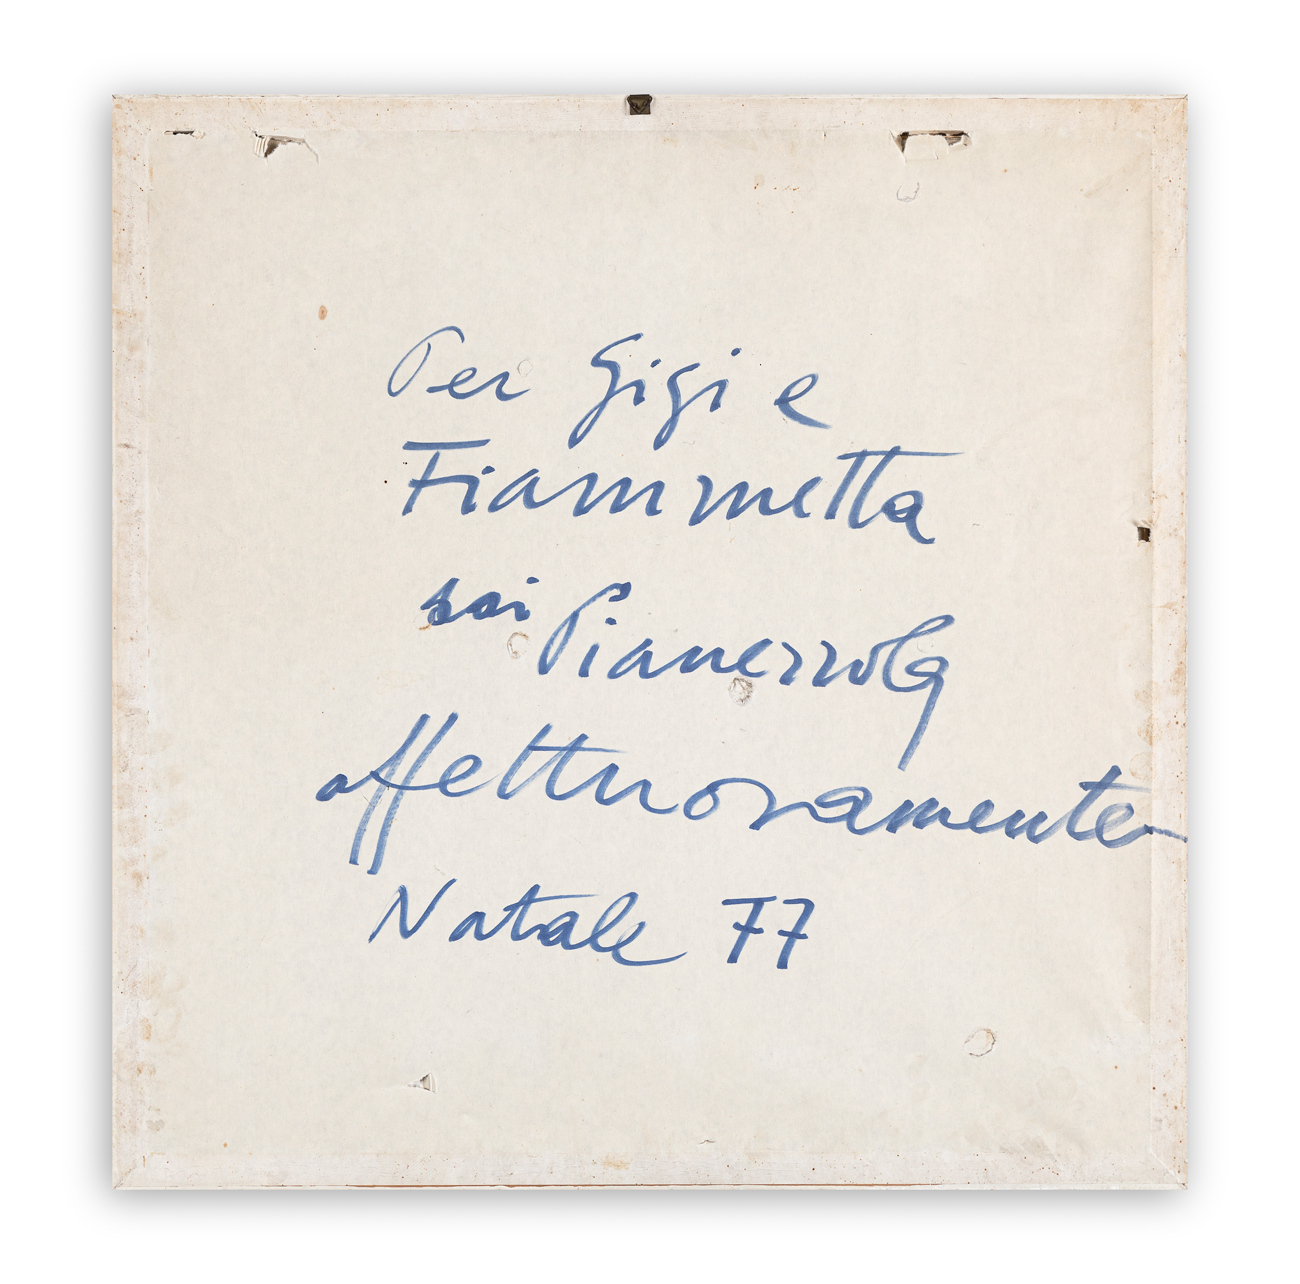 Per Gigi e
Fiammetta
dai Pianezzola
affettuosamente
Natale 77